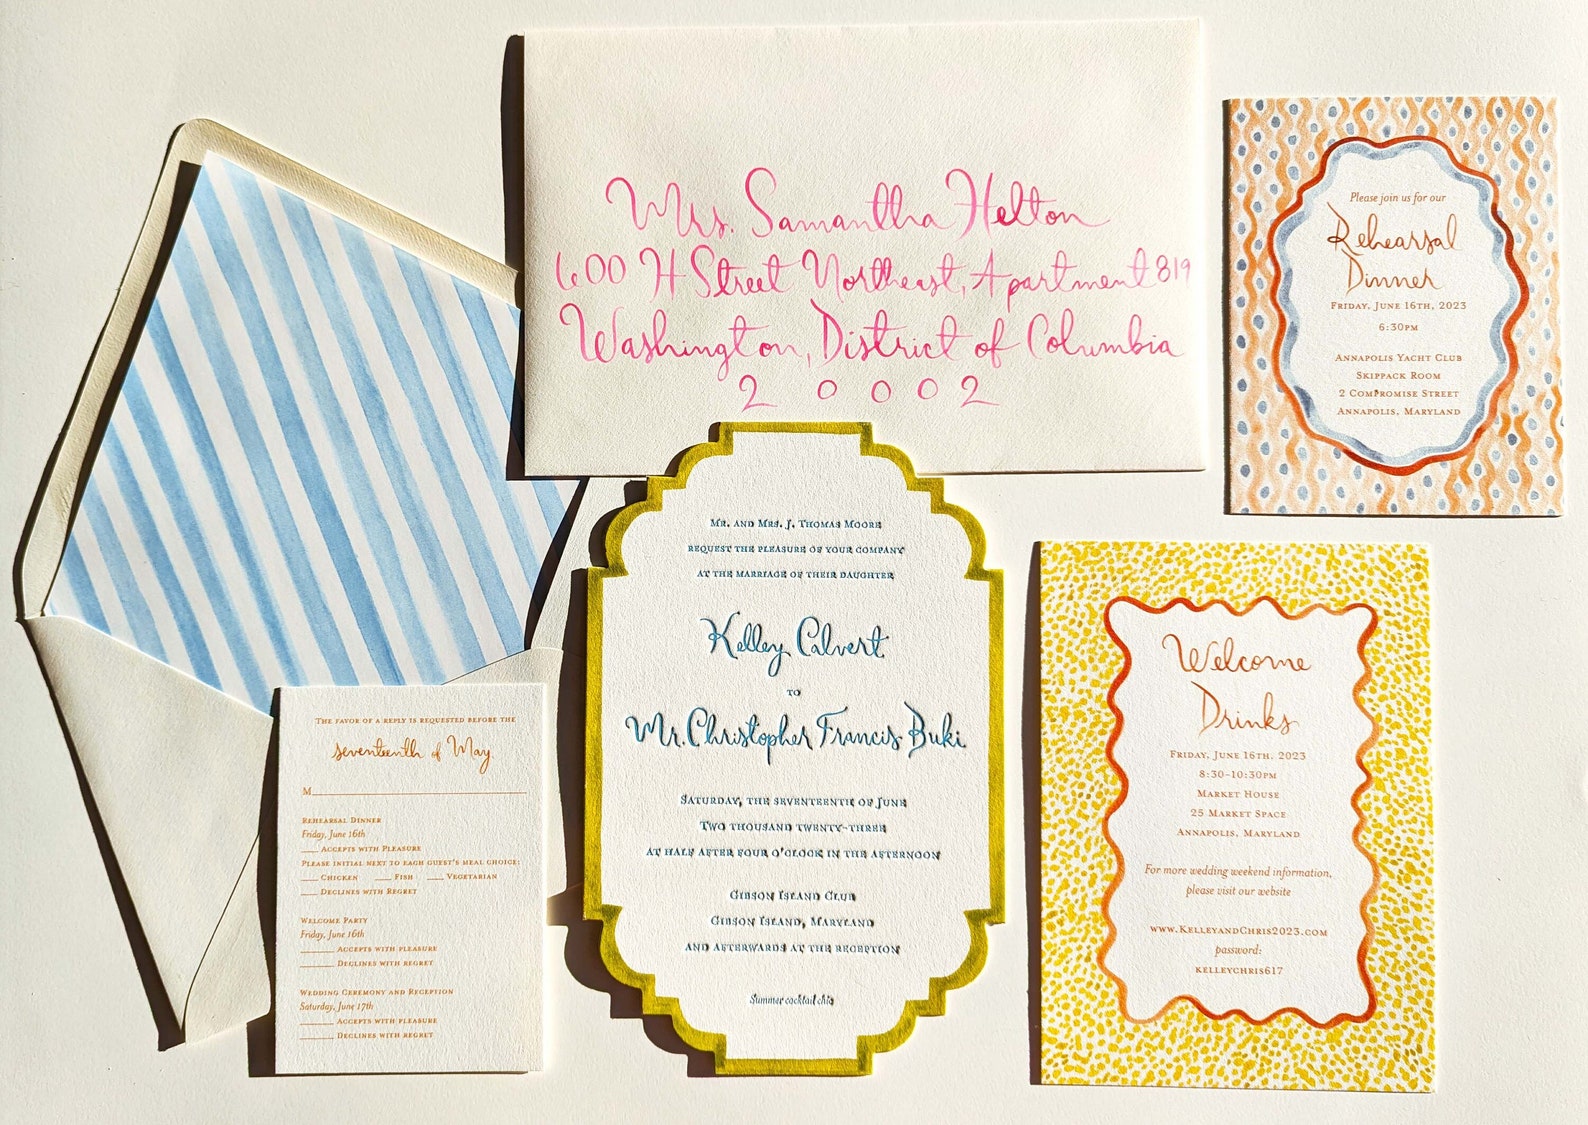 Mrs. Samantha Helton
600 H Street Northeast, Apartment 819
Washington, District of Columbia
20002
Please join us for our
Rehearsal
Dinner
Friday, June 16th, 2023
6:30pm
Annapolis Yacht Club
Skippack Room
2 Compromise Street
Annapolis, Maryland
Mr. and Mrs. J. Thomas Moore
request the pleasure of your company
at the marriage of their daughter
Kelley Calvert
to
Mr. Christopher Francis Buki
Saturday, the seventeenth of June
Two thousand twenty-three
at half after four o'clock in the afternoon
Gibson Island Club
Gibson Island, Maryland
and afterwards at the reception
Summer cocktail chic
The favor of a reply is requested before the
seventeenth of May.
M
Rehearsal Dinner
Friday, June 16th
Accepts with Pleasure
Please initial next to each guest's meal choice:
Chicken Fish Vegetarian
Declines with Regret
Welcome Party
Friday, June 16th
Accepts with pleasure
Declines with regret
Wedding Ceremony and Reception
Saturday, June 17th
Accepts with pleasure
Declines with regret
Welcome
Drinks
Friday, June 16th, 2023
8:30-10:30pm
Market House
25 Market Space
Annapolis, Maryland
For more wedding weekend information,
please visit our website
www.KelleyandChris2023.com
password:
kelleychris617